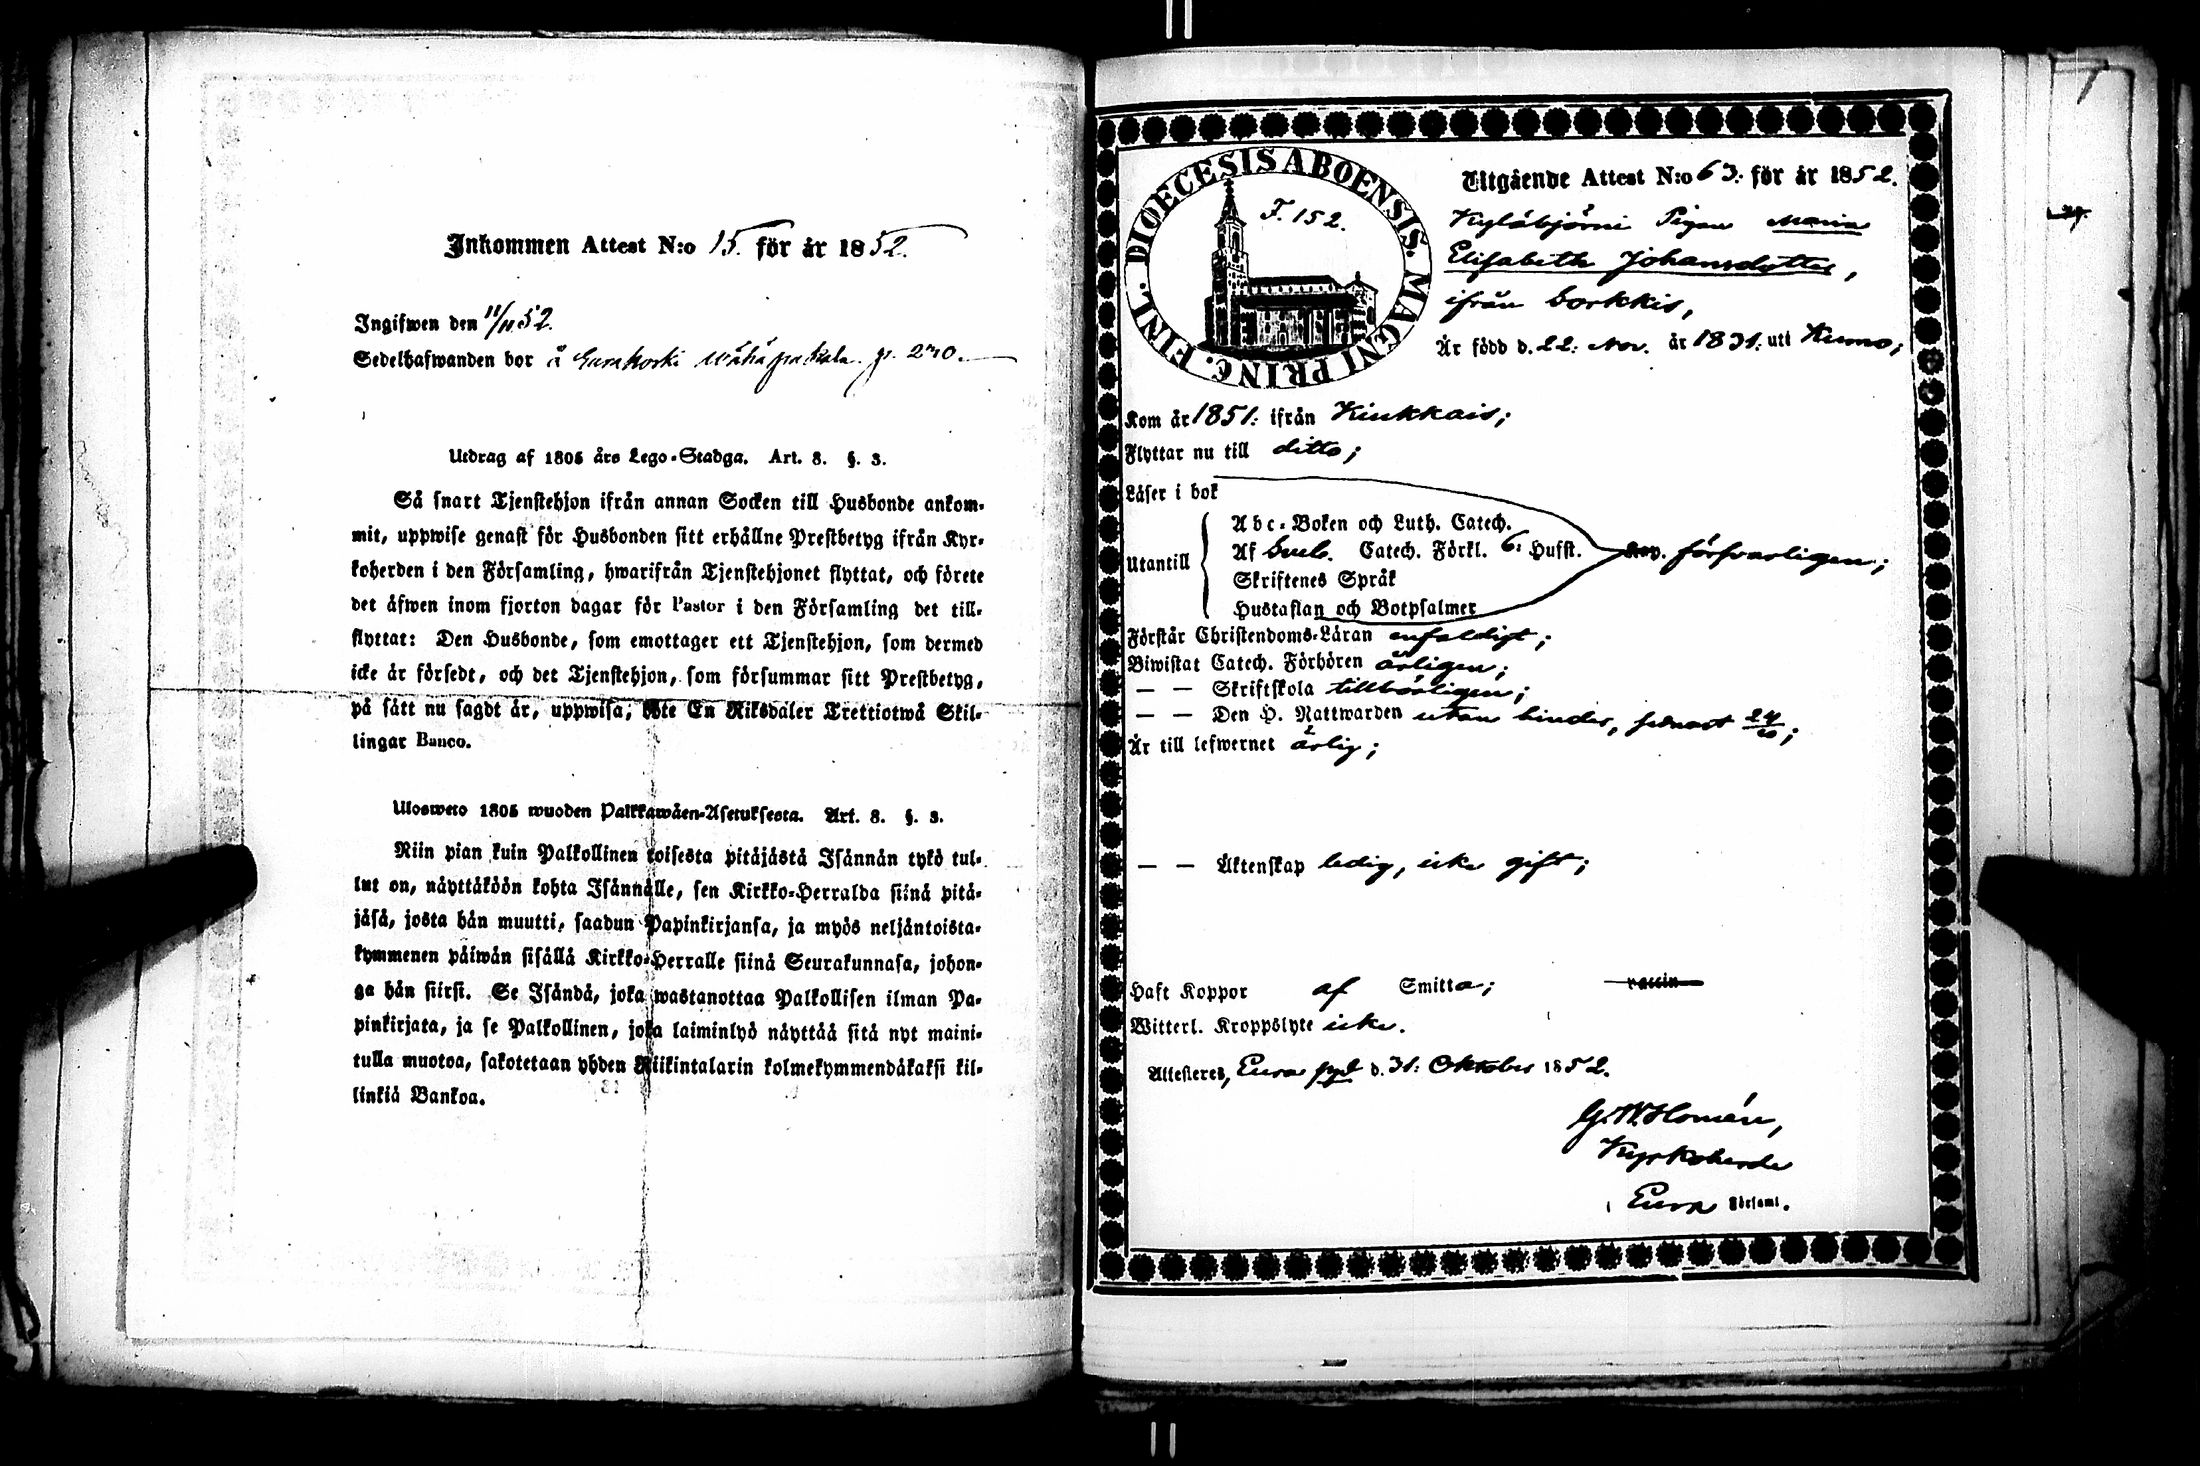 Inkommen Attest N:o 15. för år 1852.
Ingifwen den 11/11 52.
Sedelhafwanden bor å Eurakoski p. 240.
Utdrag af 1805 års Lego-Stadga. Art. 8. §. 3.
Så snart Tjenstehjon ifrån annan Socken till Husbonde ankom-
mit, uppwise genast för Husbonden sitt erhållne Prestbetyg ifrån Kyr-
koherden i den Församling, hwarifrån Tjenstehjonet flyttat, och förete
det äfwen inom fjorton dagar för Pastor i den Församling det till-
flyttat: Den Husbonde, som emottager ett Tjenstehjon, som dermed
icke är försedt, och det Tjenstehjon, som försummar sitt Prestbetyg,
på sätt nu sagdt är, uppwisa, böte En Riksdaler Trettiotwå Skil-
lingar Banco.
Ulosweto 1805 wuoden Palkkawäen-Asetuksesta. Art. 8. §. 3.
Niin pian kuin Palkollinen toisesta pitäjästä Isännän tykö tul-
lut on, näyttäköön kohta Isännälle, sen Kirkko-Herralda siinä pitä-
jäsä, josta hän muutti, saadun Papinkirjansa, ja myös neljäntoista-
kymmenen päiwän sisällä Kirkko-Herralle siinä Seurakunnasa, johon-
ga hän siirsi. Se Isändä, joka wastanottaa Palkollisen ilman Pa-
pinkirjata, ja se Palkollinen, joka laiminlyö näyttää sitä nyt maini-
tulla muotoa, sakotetaan yhden Riikintalarin kolmekymmendäkaksi kil-
linkiä Bankoa.
DIOECESIS ABOENSIS. MAGNI PRINC. FINL.
F. 152.
Utgående Attest N:o 63. för år 1852.
Kyläbjörni Pigan Maria
Elisabeth Johansdotter,
ifrån Sorkkis,
Är född d. 22: Nov. år 1831. uti Kumo;
Kom år 1851: ifrån Kiukkais;
Flyttar nu till ditto;
Läser i bok
Utantill
Abc-Boken och Luth. Catech.
Af Sveb. Catech. Förkl. 6: Hufst.
Skriftenes Språk
Hustaflan och Botpsalmer
försvarligen;
Förstår Christendoms-Läran enfaldigt;
Biwistat Catech. Förhören årligen;
— — Skriftskola tillbörligen;
— — Den H. Nattwarden utan hinder, senast 24/10;
Är till lefwernet ärlig;
— — Äktenskap ledig, icke gift;
Haft Koppor af Smitta; vaccin
Witterl. Kroppslyte icke.
Attesteres, Eura pgd d. 31: Oktober 1852.
G. W. Homén,
Kyrkoherde
i Eura Församl.